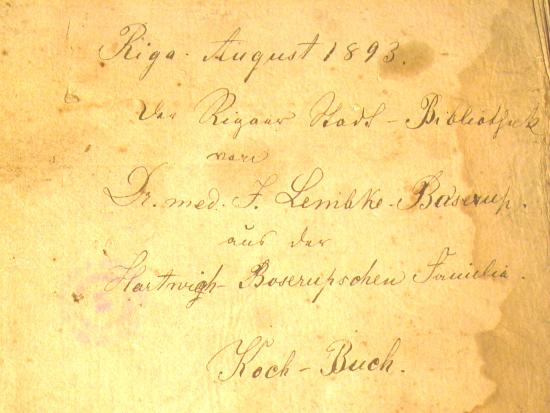 Riga. August 1893.
Der Rigaer Stadt-Bibliothek
von
Dr. med. F. Lembke-Boserup.
aus der
Hartwigh-Boserupschen Familie.
Koch-Buch.